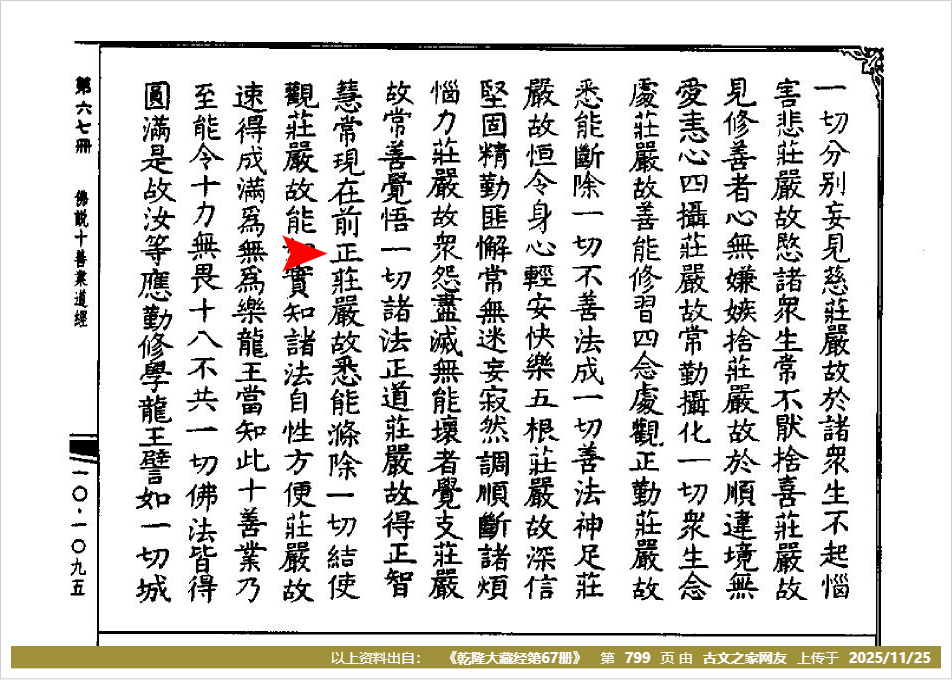 一切分別妄見慈莊嚴故於諸衆生不起惱
害悲莊嚴故愍諸衆生常不猒捨喜莊嚴故
見修善者心無嫌嫉捨莊嚴故於順違境無
愛恚心四攝莊嚴故常勤攝化一切衆生念
處莊嚴故善能修習四念處觀正勤莊嚴故
悉能斷除一切不善法成一切善法神足莊
嚴故恒令身心輕安快樂五根莊嚴故深信
堅固精勤匪懈常無迷妄寂然調順斷諸煩
惱力莊嚴故衆怨盡滅無能壞者覺支莊嚴
故常善覺悟一切諸法正道莊嚴故得正智
慧常現在前正莊嚴故悉能滌除一切結使
觀莊嚴故能實知諸法自性方便莊嚴故
速得成滿爲無爲樂龍王當知此十善業乃
至能令十力無畏十八不共一切佛法皆得
圓滿是故汝等應勤修學龍王譬如一切城
第六七冊 佛説十善業道經 一〇·一〇九五
以上资料出自: 《乾隆大藏经第67册》 第 799 页 由 古文之家网友 上传于 2025/11/25